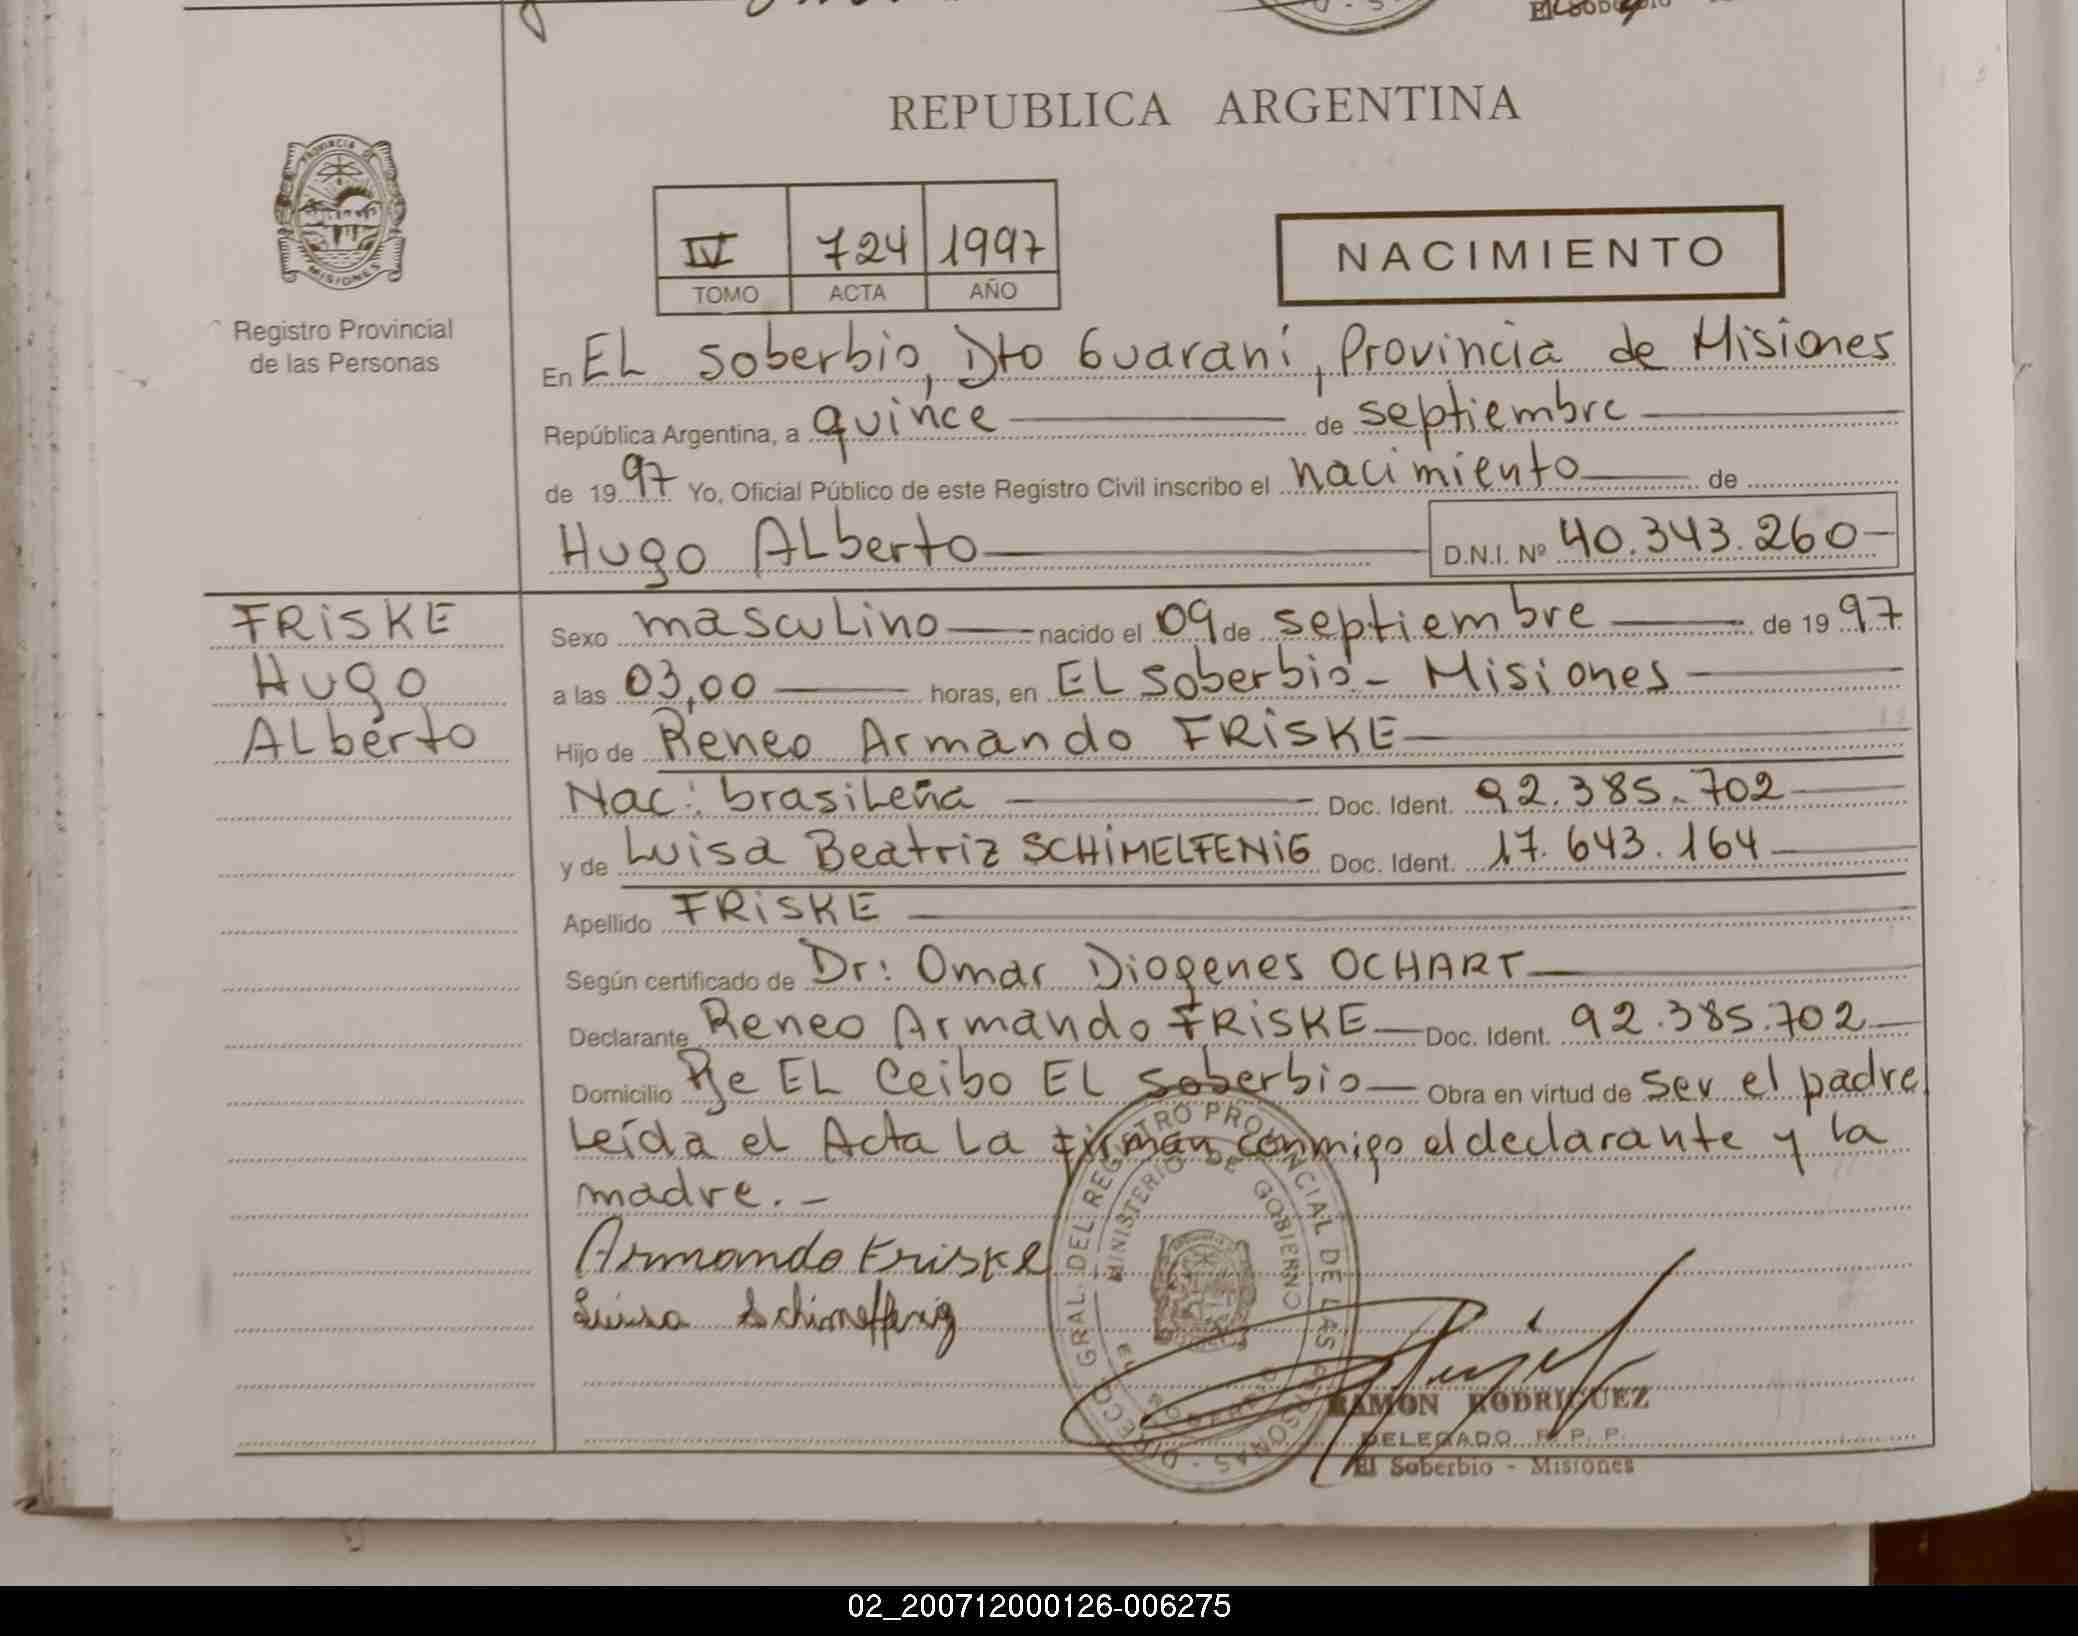 REPUBLICA ARGENTINA
PROVINCIA DE MISIONES
Registro Provincial
de las Personas
IV 724 1997
TOMO ACTA AÑO
NACIMIENTO
En EL Soberbio, Dto Guaraní, Provincia de Misiones
República Argentina, a quince de septiembre
de 1997 Yo, Oficial Público de este Registro Civil inscribo el nacimiento de
Hugo ALberto D.N.I. Nº 40.343.260
FRISKE
Hugo
ALberto
Sexo mascuLino nacido el 09 de septiembre de 1997
a las 03,00 horas, en EL Soberbio - Misiones
Hijo de Reneo Armando FRISKE
Nac: brasiLeña Doc. Ident. 92.385.702
y de Luisa Beatriz SCHIMELFENIG Doc. Ident. 17.643.164
Apellido FRISKE
Según certificado de Dr: Omar Diogenes OCHART
Declarante Reneo Armando FRISKE Doc. Ident. 92.385.702
Domicilio Pje EL Ceibo EL Soberbio Obra en virtud de ser el padre
Leída el Acta La firman conmigo el declarante y la
madre.-
Armando Friske
Luisa Schimelfenig
DIRECC. GRAL. DEL REGISTRO PROVINCIAL DE LAS PERSONAS
MINISTERIO DE GOBIERNO
EL SOBERBIO
RAMON RODRIGUEZ
DELEGADO R. P. P.
El Soberbio - Misiones
02_200712000126-006275